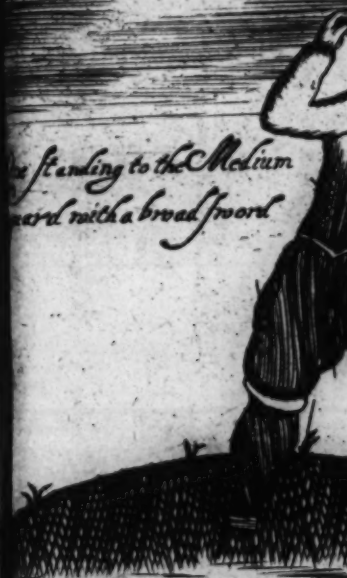 standing to the Medium
with a broad sword